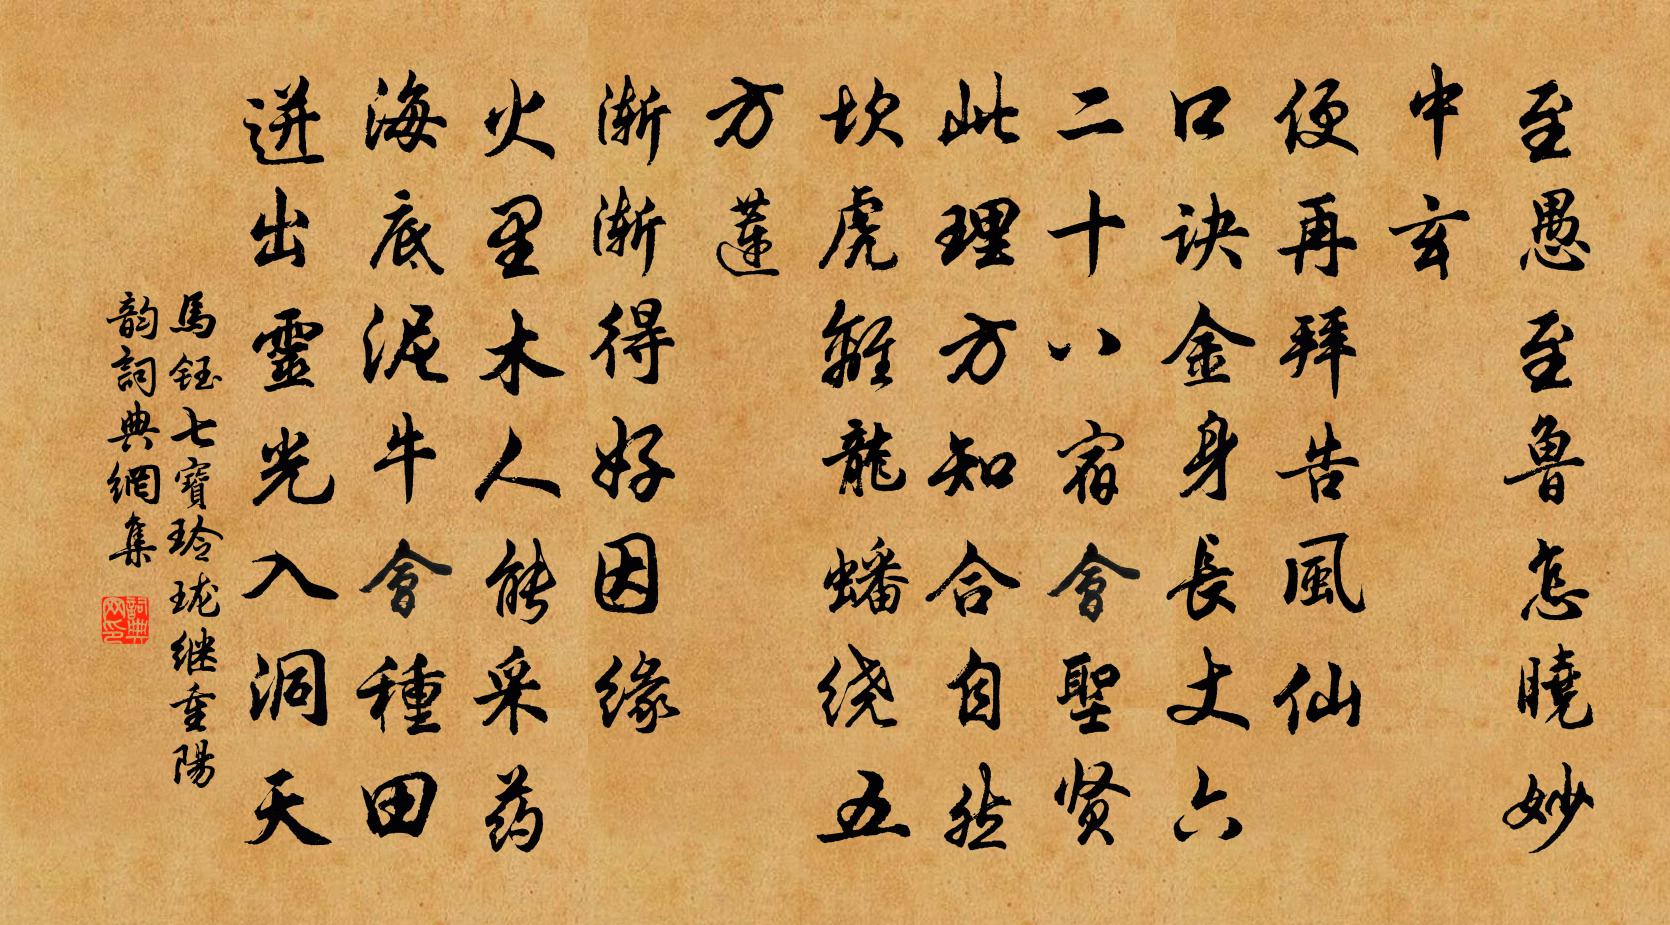 至愚至魯怎曉妙
中玄
便再拜告風仙
口诀金身長丈六
二十八宿會聖贤
此理方知合自然
坎虎離龍蟠绕五
方蓮
渐渐得好因缘
火里木人能采药
海底泥牛會種田
迸出靈光入洞天
馬鈺七寶玲珑继重陽
韵詞典網集
詞典
网印